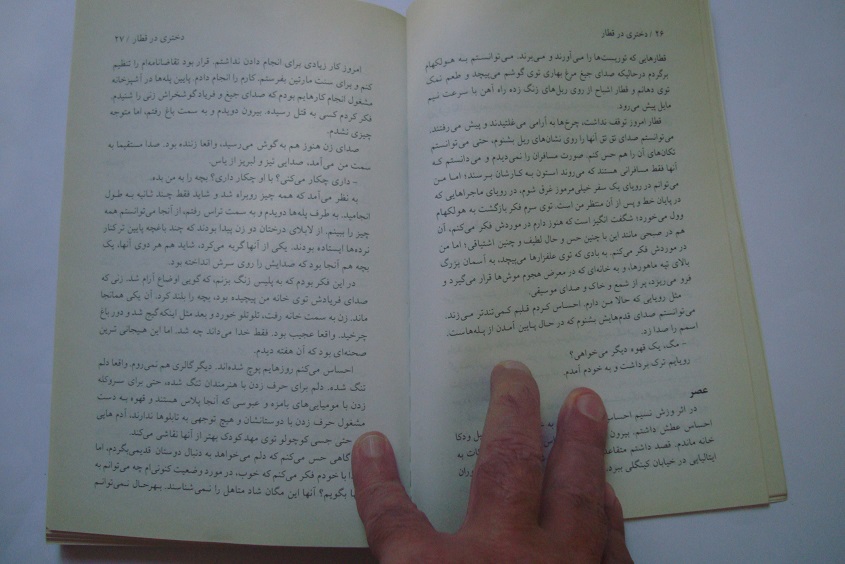 ۲۶ / دختری در قطار
قطارهایی که توریست‌ها را می‌آورند و می‌برند. می‌توانستم به هولکهام
برگردم درحالیکه صدای جیغ مرغ بهاری توی گوشم می‌پیچد و طعم نمک
توی دهانم و قطار اشباح از روی ریل‌های زنگ زده راه آهن با سرعت نیم
مایل پیش می‌رود.
قطار امروز توقف نداشت، چرخ‌ها به آرامی می‌غلتیدند و پیش می‌رفتند.
می‌توانستم صدای تق تق آنها را روی نشان‌های ریل بشنوم، حتی می‌توانستم
تکان‌های آن را هم حس کنم. صورت مسافران را نمی‌دیدم و می‌دانستم که
آنها فقط مسافرانی هستند که می‌روند استون به کارشان برسند؛ اما من
می‌توانم در رویای یک سفر خیلی‌مرموز غرق شوم، در رویای ماجراهایی که
درپایان خط و پس از آن منتظر من است. توی سرم فکر بازگشت به هولکهام
وول می‌خورد؛ شگفت انگیز است که هنوز دارم در موردش فکر می‌کنم، آن
هم در صبحی مانند این با چنین حس و حال لطیف و چنین اشتیاقی؛ اما من
در موردش فکر می‌کنم. به بادی که توی علفزارها می‌پیچد، به آسمان بزرگ
بالای تپه ماهورها، و به خانه‌ای که در معرض هجوم موش‌ها قرار می‌گیرد و
فرو می‌ریزد، پر از شمع و خاک و صدای موسیقی.
مثل رویایی که حالا من دارم. احساس کردم قلبم کمی‌تندتر می‌زند.
می‌توانستم صدای قدم‌هایش بشنوم که در حال پایین آمدن از پله‌هاست.
اسمم را صدا زد.
- مگ، یک قهوه دیگر می‌خواهی؟
رویایم ترک برداشت و به خودم آمدم.
عصر
در اثر وزش نسیم احساس به ودکا
احساس عطش داشتم. بیرون به
خانه ماندم. قصد داشتم متقاعد
ایتالیایی در خیابان کینگلی ببرد.
دختری در قطار / ۲۷
امروز کار زیادی برای انجام دادن نداشتم. قرار بود تقاضانامه‌ام را تنظیم
کنم و برای سنت مارتین بفرستم. کارم را انجام دادم. پایین پله‌ها در آشپزخانه
مشغول انجام کارهایم بودم که صدای جیغ و فریادگوشخراش زنی را شنیدم.
فکر کردم کسی به قتل رسیده. بیرون دویدم و به سمت باغ رفتم، اما متوجه
چیزی نشدم.
صدای زن هنوز هم به گوش می‌رسید، واقعا زننده بود. صدا مستقیما به
سمت من می‌آمد، صدایی تیز و لبریز از یاس.
- داری چکار می‌کنی؟ با او چکار داری؟ بچه را به من بده.
به نظر می‌آمد که همه چیز روبراه شد و شاید فقط چند ثانیه به طول
انجامید. به طرف پله‌ها دویدم و به سمت تراس رفتم، از آنجا می‌توانستم همه
چیز را ببینم. از لابلای درختان دو زن پیدا بودند که چند باغچه پایین تر کنار
نرده‌ها ایستاده بودند. یکی از آنها گریه می‌کرد، شاید هم هر دوی آنها، یک
بچه هم آنجا بود که صدایش را روی سرش انداخته بود.
در این فکر بودم که به پلیس زنگ بزنم، که گویی اوضاع آرام شد. زنی که
صدای فریادش توی خانه من پیچیده بود، بچه را بلند کرد. آن یکی همانجا
ماند. زن به سمت خانه رفت، تلوتلو خورد و بعد مثل اینکه گیج شد و دور باغ
چرخید. واقعا عجیب بود. فقط خدا می‌داند چه شد. اما این هیجانی ترین
صحنه‌ای بود که آن هفته دیدم.
احساس می‌کنم روزهایم پوچ شده‌اند. دیگر گالری هم نمی‌روم. واقعا دلم
تنگ شده. دلم برای حرف زدن با هنرمندان تنگ شده، حتی برای سروکله
زدن با مومیایی‌های بامزه و عبوسی که آنجا پلاس هستند و قهوه به دست
مشغول حرف زدن با دوستانشان و هیچ توجهی به تابلوها ندارند، آدم هایی
حتی جسی کوچولو توی مهدکودک بهتر از آنها نقاشی می‌کند.
گاهی حس می‌کنم که دلم می‌خواهد به دنبال دوستان قدیمی‌بگردم، اما
با خودم فکر می‌کنم که خوب، در مورد وضعیت کنونی‌ام چه می‌توانم به
بگویم؟ آنها این مگان شاد متاهل را نمی‌شناسند. بهرحال نمی‌توانم